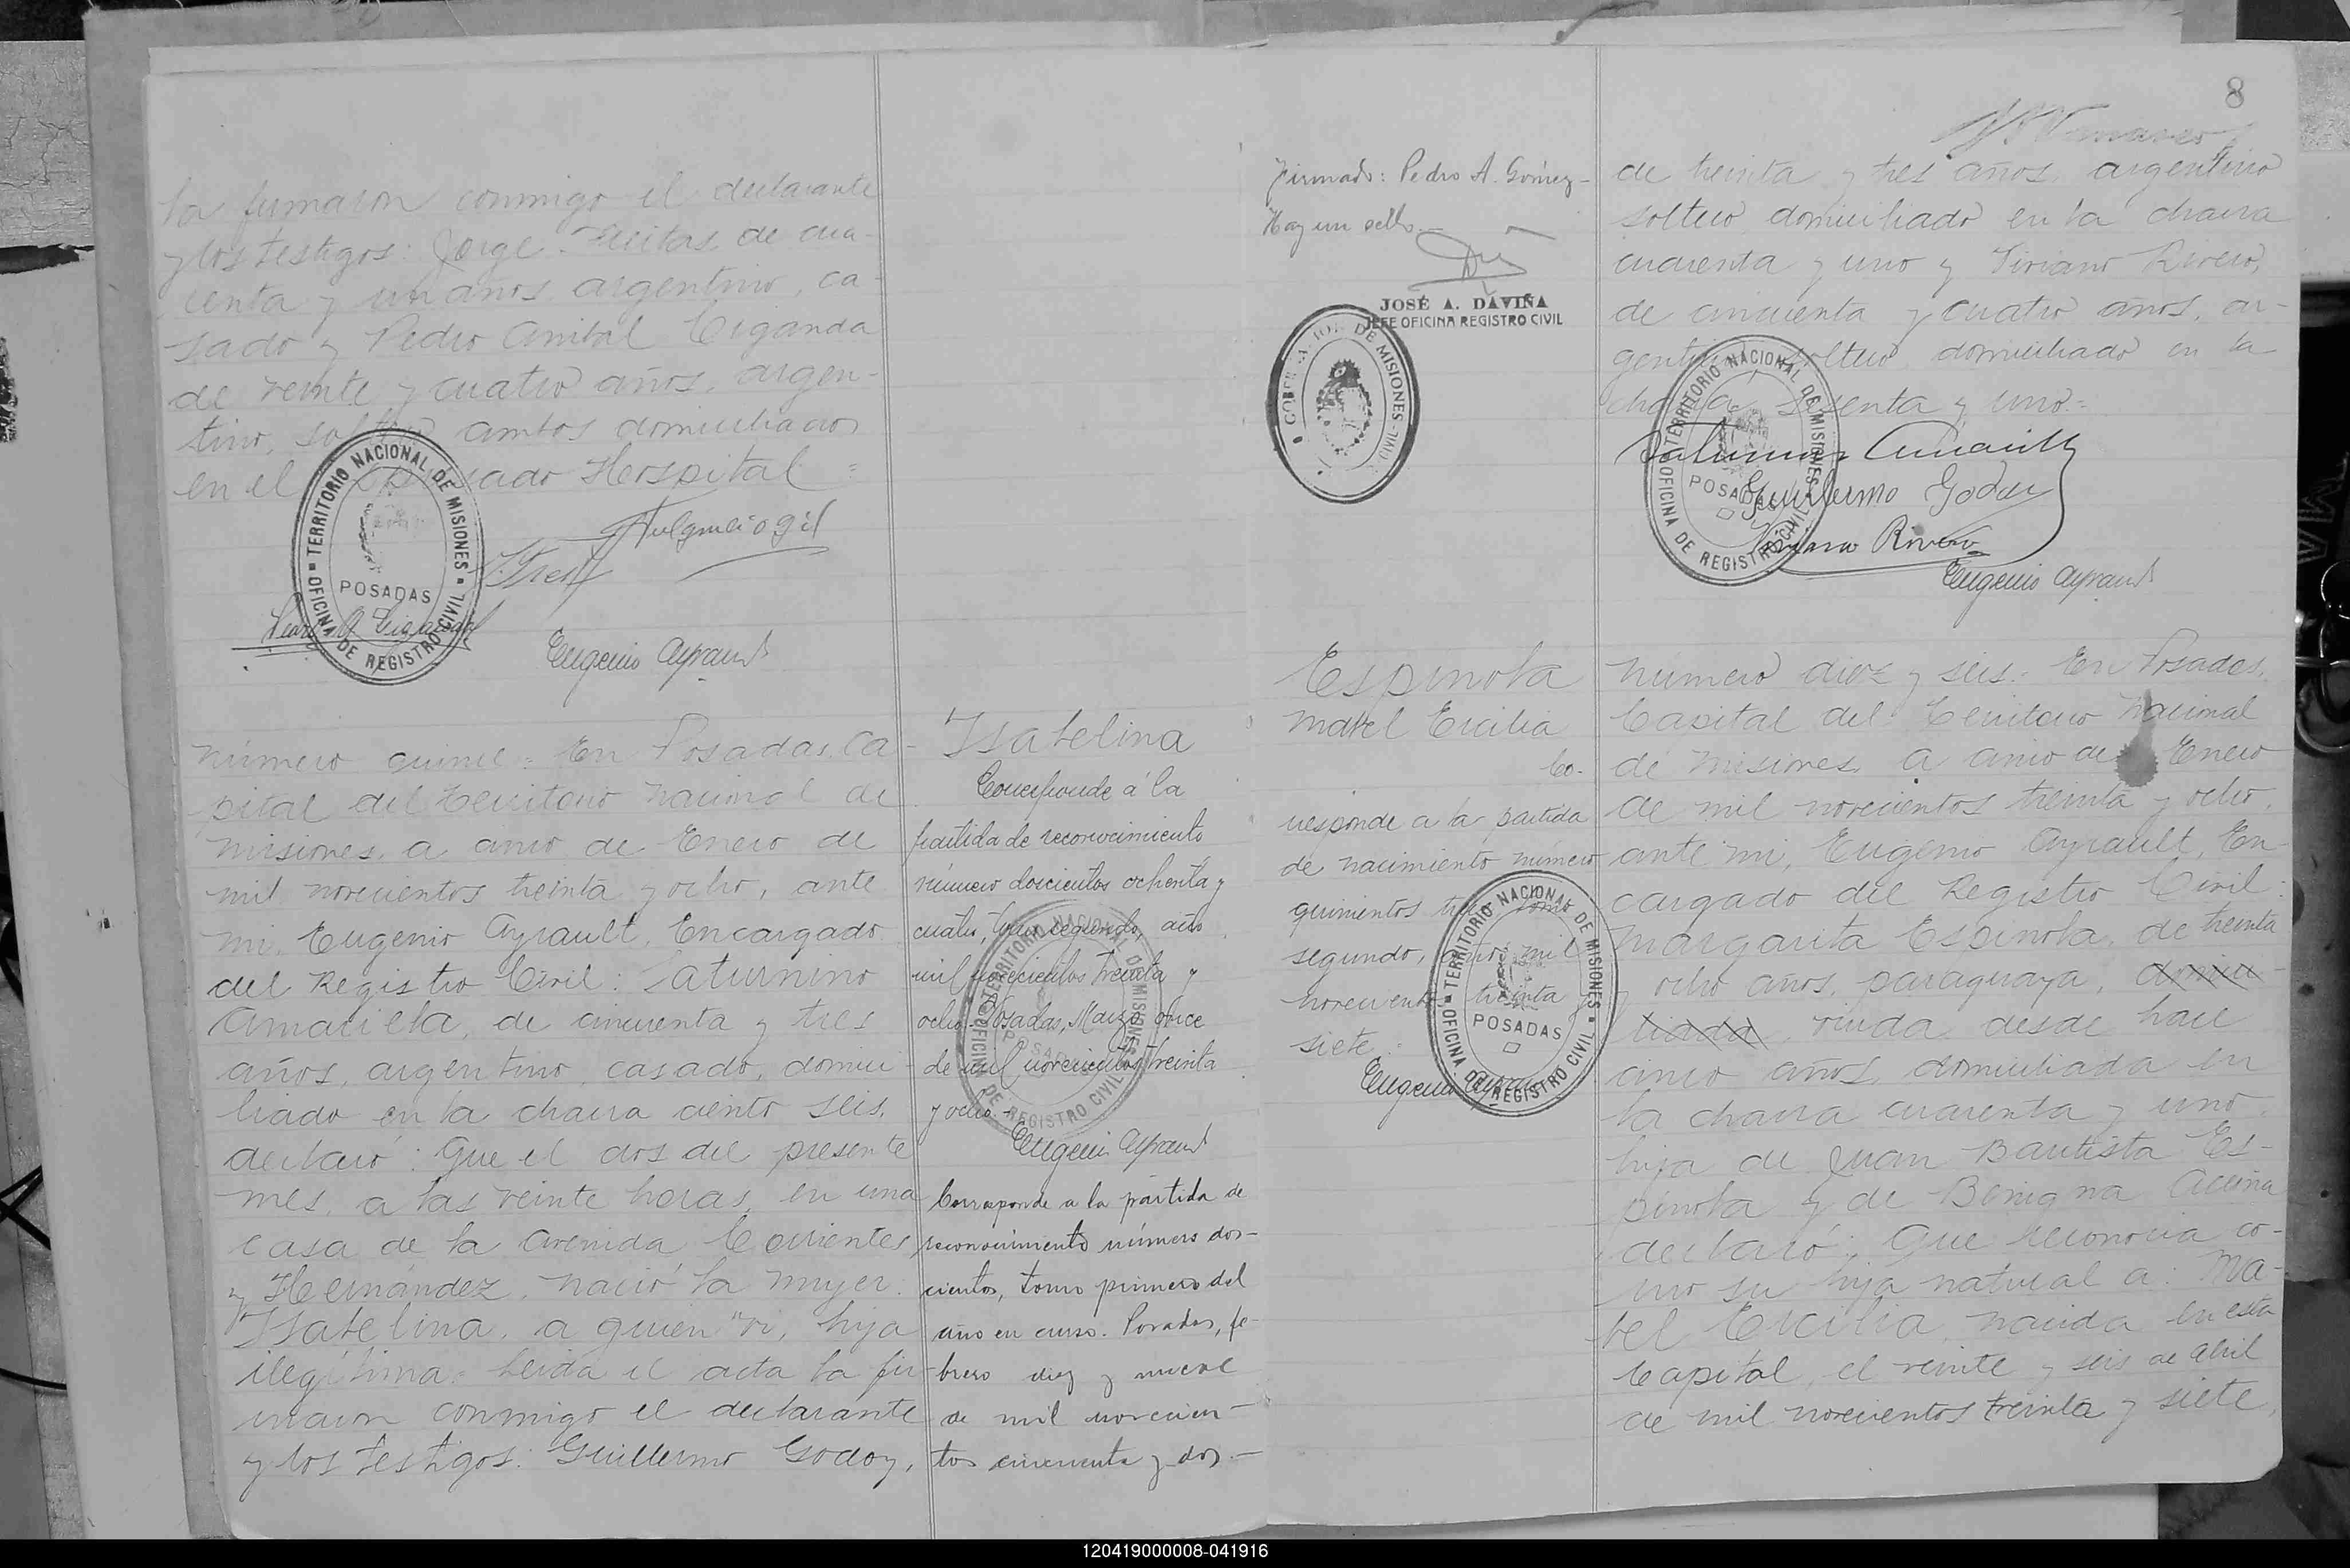 la firmaron conmigo el declarante
y los testigos: Jorge Freitas, de cua-
renta y un años, argentino, ca-
sado y Pedro Anibal Ciganda
de veinte y cuatro años, argen-
tino, soltero ambos domiciliados
en el expresado Hospital =
Fulgencio Gil
TERRITORIO NACIONAL DE MISIONES
POSADAS
OFICINA DE REGISTRO CIVIL
Eugenio Ayrault
Número quince: En Posadas, Ca-
pital del Territorio Nacional de
Misiones, a cinco de Enero de
mil novecientos treinta y ocho, ante
mi, Eugenio Ayrault, Encargado
del Registro Civil: Saturnino
Amarilla, de cincuenta y tres
años, argentino, casado, domici-
liado en la chacra ciento seis,
declaró: Que el dos del presente
mes, a las veinte horas, en una
casa de la Avenida Corrientes
y Hernández, nació la mujer
Isabelina, a quien vi, hija
ilegítima. Leida el acta la fir-
maron conmigo el declarante
y los testigos: Guillermo Godoy,
Isabelina
Corresponde á la
partida de reconocimiento
número doscientos ochenta y
cuatro, tomo segundo, año
mil novecientos treinta y
ocho. Posadas, Marzo once
de mil novecientos treinta
y ocho.-
Eugenio Ayrault
TERRITORIO NACIONAL DE MISIONES
POSADAS
OFICINA DE REGISTRO CIVIL
Corresponde a la partida de
reconocimiento número dos-
cientos, tomo primero del
año en curso. Posadas, fe-
brero diez y nueve
de mil novecien-
tos cincuenta y dos.-
Firmado: Pedro A. Gómez-
Hay un sello.-
JOSÉ A. DAVIÑA
JEFE OFICINA REGISTRO CIVIL
GOBERNACION DE MISIONES
CIVIL
8
de treinta y tres años, argentino
soltero domiciliado en la chacra
cuarenta y uno y Viriano Rivero,
de cincuenta y cuatro años, ar-
gentino, soltero, domiciliado en la
chacra sesenta y uno.=
Saturnino Amarilla
Guillermo Godoy
Rivero
Eugenio Ayrault
TERRITORIO NACIONAL DE MISIONES
POSADAS
OFICINA DE REGISTRO CIVIL
Espinola
Mabel Ercilia
Co-
rresponde a la partida
de nacimiento número
quinientos tres tomo
segundo, año mil
novecientos treinta y
siete.
Eugenio Ayrault
TERRITORIO NACIONAL DE MISIONES
POSADAS
OFICINA DE REGISTRO CIVIL
Número diez y seis.- En Posadas,
Capital del Territorio Nacional
de Misiones, a cinco de Enero
de mil novecientos treinta y ocho,
ante mi, Eugenio Ayrault, En-
cargado del Registro Civil:
Margarita Espinola, de treinta
y ocho años, paraguaya, domici-
liada, viuda desde hace
cinco años, domiciliada en
la chacra cuarenta y uno,
hija de Juan Bautista Es-
pinola y de Benigna Acuña
declaró: Que reconocia co-
mo su hija natural a: Ma-
bel Ercilia, nacida en esta
Capital, el veinte y seis de Abril
de mil novecientos treinta y siete,
120419000008-041916